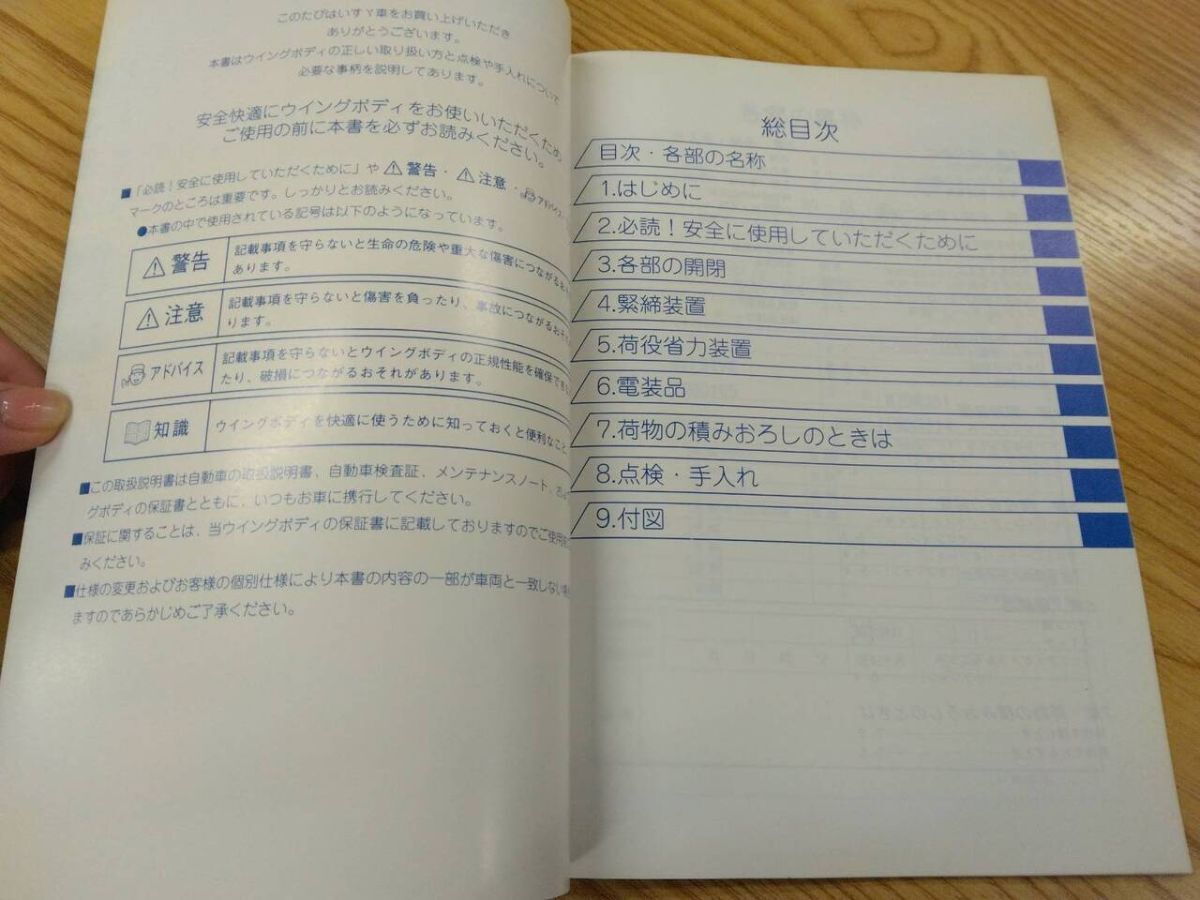 このたびはいすゞ車をお買い上げいただき
ありがとうございます。
本書はウイングボディの正しい取り扱い方と点検や手入れについて
必要な事柄を説明してあります。
安全快適にウイングボディをお使いいただくため
ご使用の前に本書を必ずお読みください。
■「必読！安全に使用していただくために」や⚠警告・⚠注意・アドバイス
マークのところは重要です。しっかりとお読みください。
●本書の中で使用されている記号は以下のようになっています。
⚠警告
記載事項を守らないと生命の危険や重大な傷害につながるお
あります。
⚠注意
記載事項を守らないと傷害を負ったり、事故につながるおそれ
ります。
アドバイス
記載事項を守らないとウイングボディの正規性能を確保でき
たり、破損につながるおそれがあります。
知識
ウイングボディを快適に使うために知っておくと便利なこと
■この取扱説明書は自動車の取扱説明書、自動車検査証、メンテナンスノート、およ
グボディの保証書とともに、いつもお車に携行してください。
■保証に関することは、当ウイングボディの保証書に記載しておりますのでご使用
みください。
■仕様の変更およびお客様の個別仕様により本書の内容の一部が車両と一致しない
ますのであらかじめご了承ください。
総目次
目次・各部の名称
1.はじめに
2.必読！安全に使用していただくために
3.各部の開閉
4.緊締装置
5.荷役省力装置
6.電装品
7.荷物の積みおろしのときは
8.点検・手入れ
9.付図